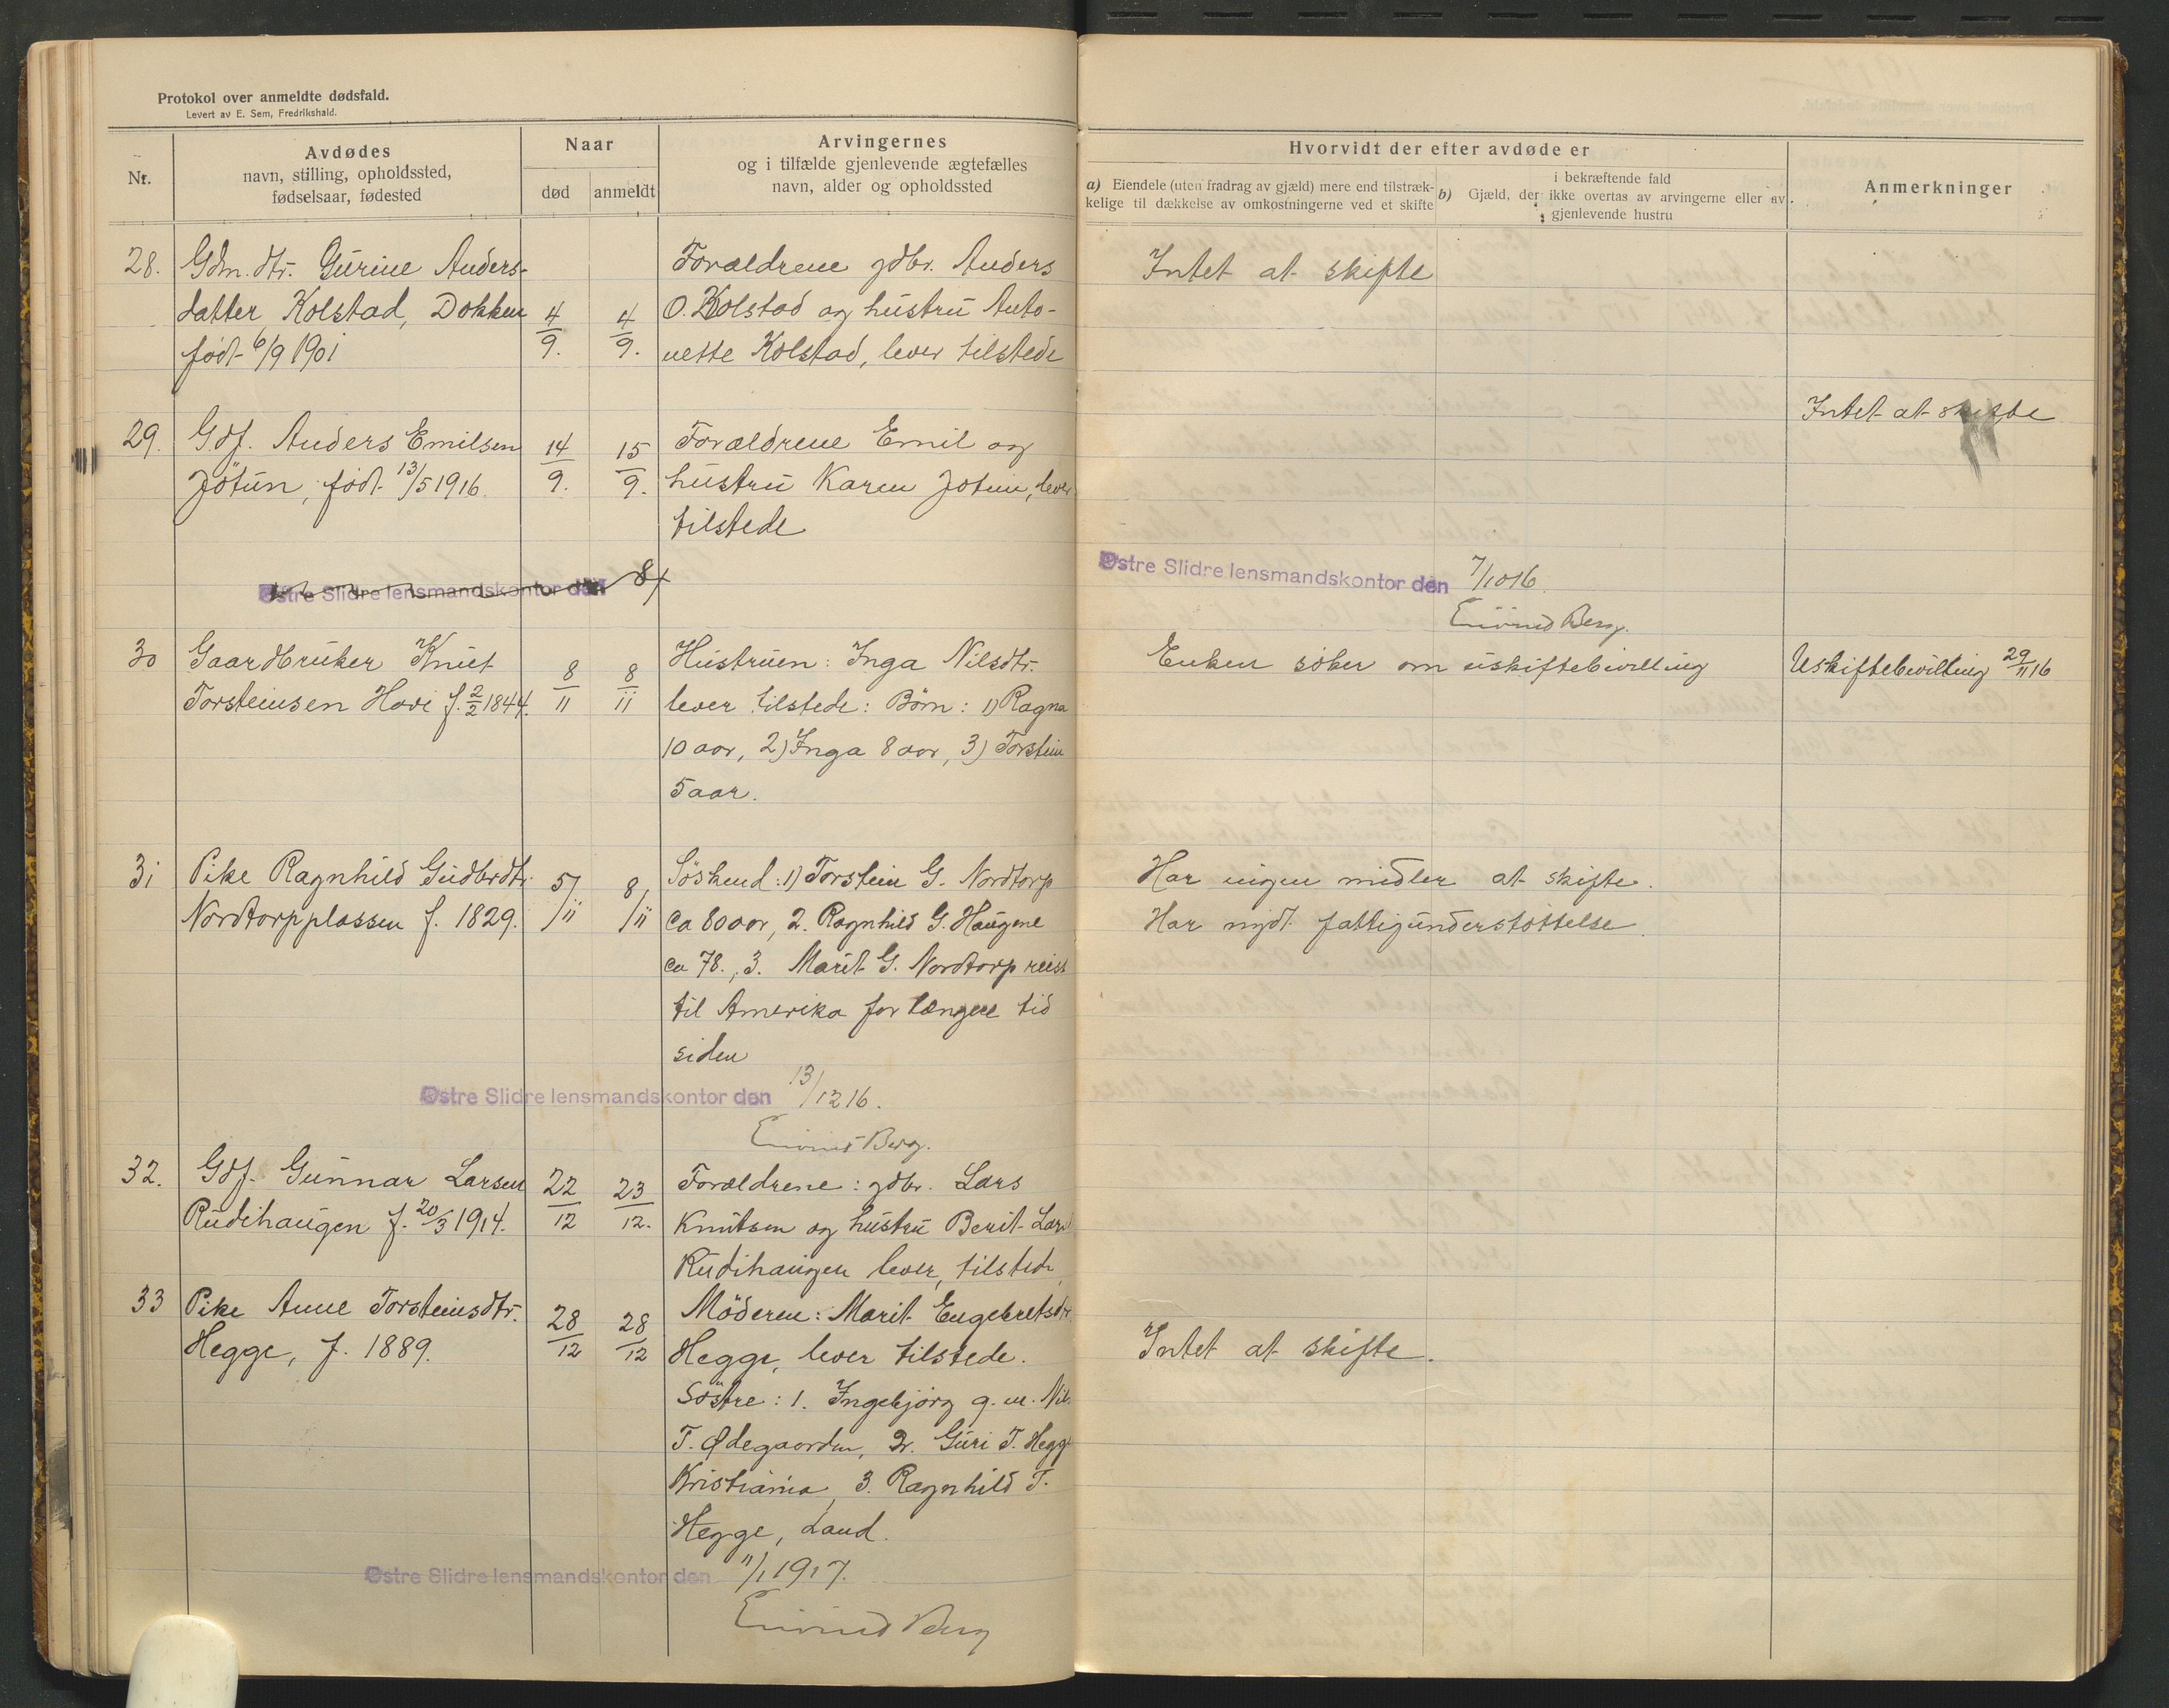 Protokol over anmeldte dødsfald.
Levert av E. Sem, Fredrikshald.
Nr.
Avdødes
navn, stilling, opholdssted,
fødselsaar, fødested
Naar
død
anmeldt
Arvingernes
og i tilfælde gjenlevende ægtefælles
navn, alder og opholdssted
Hvorvidt der efter avdøde er
a) Eiendele (uten fradrag av gjæld) mere end tilstræk-
kelige til dækkelse av omkostningerne ved et skifte
i bekræftende fald
b) Gjæld, der ikke overtas av arvingerne eller av
gjenlevende hustru
Anmerkninger
28. Gdm. dtr. Gurine Anders-
datter Kolstad, Dokken
født 6/9 1901
4/9. 4/9.
Forældrene gdbr. Anders
O. Kolstad og hustru Anto-
nette Kolstad, lever tilstede
Intet at skifte
29. Gdf. Anders Emilsen
Jötun, født 13/5 1916.
14/9. 15/9.
Forældrene Emil og
hustru Karen Jotun, lever
tilstede
Intet at skifte
Østre Slidre lensmandskontor den 8/
Østre Slidre lensmandskontor den 7/10 16.
Eivind Berg.
30 Gaardbruker Knut
Torsteinsen Hovi f. 2/2 1844.
8/11 8/11
Hustruen: Inga Nilsdtr.
lever tilstede: Børn: 1) Ragna
10 aar, 2) Inga 8 aar, 3) Torstein
5 aar.
Enken söker om uskiftebevilling
Uskiftebevilling 29/11 16
31 Pike Ragnhild Gudbrdtr.
Nordtorpplassen f. 1829.
5/11 8/11
Söskend: 1) Torstein G. Nordtorp
ca 80 aar, 2. Ragnhild G. Haugene
ca 78., 3. Marit G. Nordtorp reist
til Amerika for længere tid
siden
Har ingen midler at skifte.
Har nydt fattigunderstöttelse.
Østre Slidre lensmandskontor den 13/12 16.
Eivind Berg.
32. Gdf. Gunnar Larsen
Rudihaugen f. 20/3 1914.
22/12 23/12.
Forældrene: gdbr. Lars
Knutsen og hustru Berit Lars
Rudihaugen lever tilstede
33 Pike Anne Torsteinsdtr.
Hegge, f. 1889.
28/12 28/12
Möderen: Marit Engebretsdtr.
Hegge, lever tilstede.
Söstre: 1. Ingebjörg g. m. Nils
T. Ødegaarden, 2. Guri T. Hegge
Kristiania, 3. Ragnhild T.
Hegge, Land.
Intet at skifte.
Østre Slidre lensmandskontor den 11/1 1917.
Eivind Berg